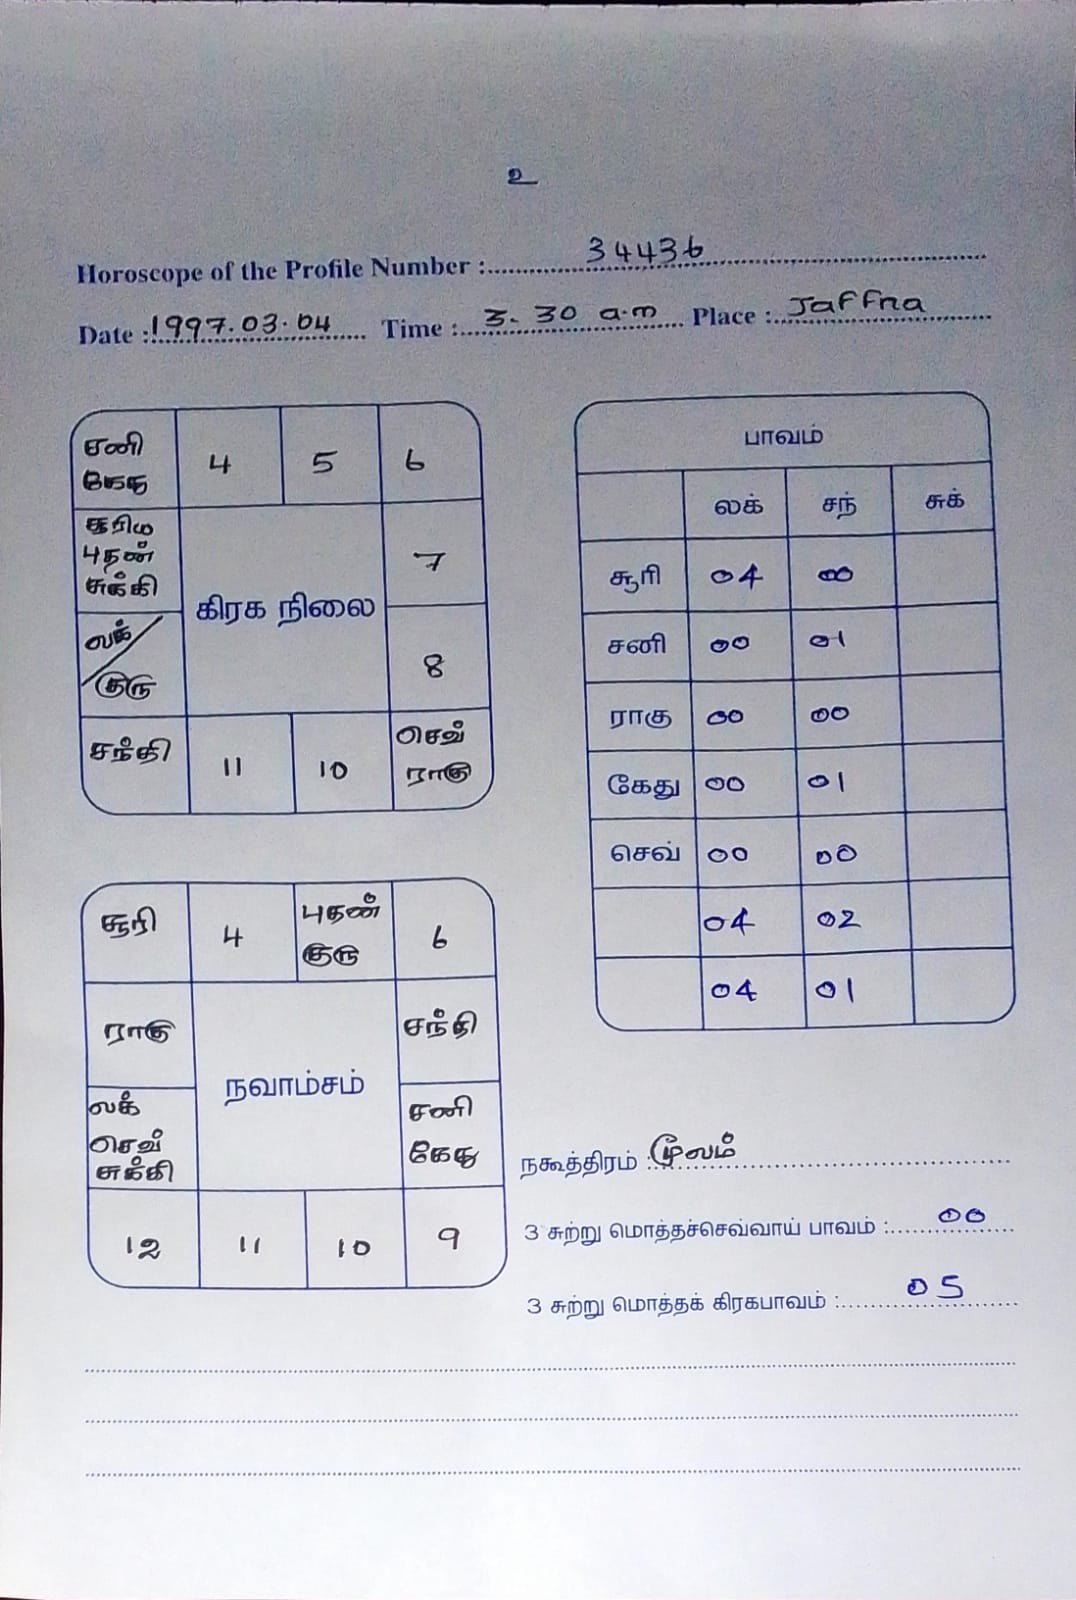 உ
Horoscope of the Profile Number : 34436
Date : 1997.03.04 Time : 3.30 a.m Place : Jaffna
சனி
கேது
4
5
6
சூரிய
புதன்
சுக்கி
கிரக நிலை
7
லக்
குரு
8
சந்தி
11
10
செவ்
ராகு
பாவம்
லக் சந் சுக்
சூரி 04 00
சனி 00 01
ராகு 00 00
கேது 00 01
செவ் 00 00
04 02
04 01
சூரி
4
புதன்
குரு
6
ராகு
நவாம்சம்
சந்தி
லக்
செவ்
சுக்கி
சனி
கேது
12
11
10
9
நகூத்திரம் : மூலம்
3 சுற்று மொத்தச்செவ்வாய் பாவம் : 00
3 சுற்று மொத்தக் கிரகபாவம் : 05